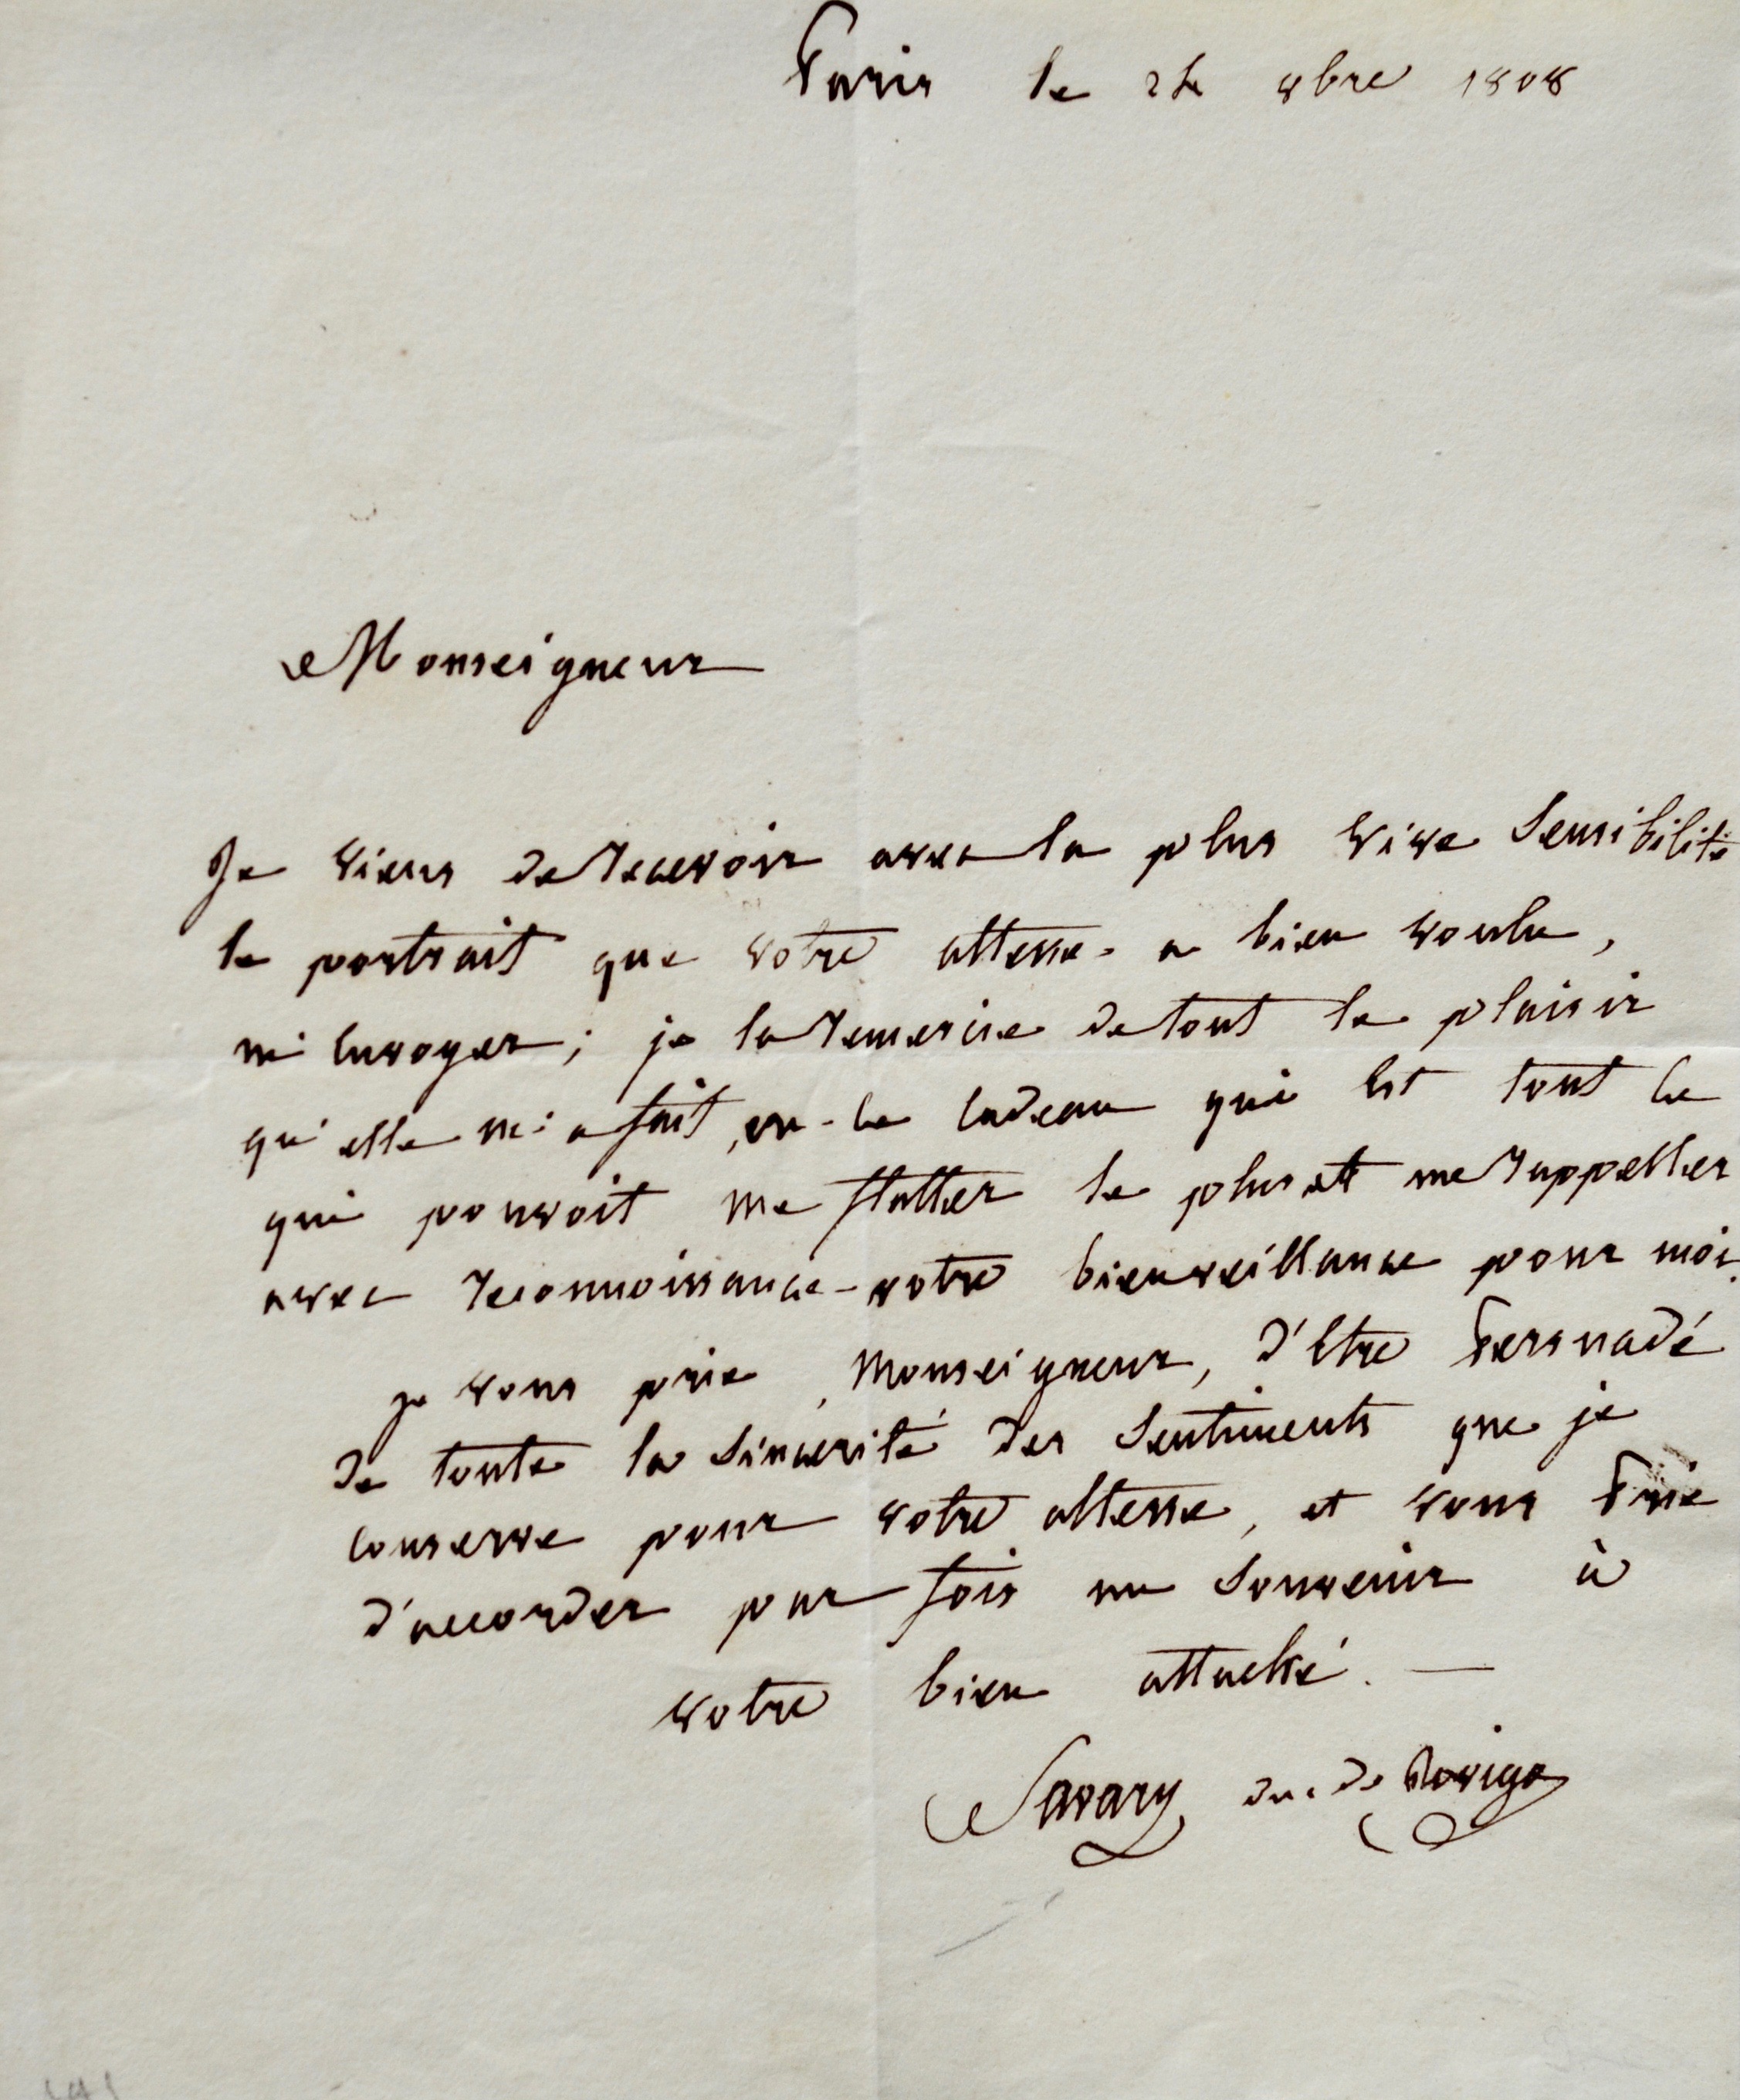 Paris le 24 8bre 1808
Monseigneur
Je viens de recevoir avec la plus vive Sensibilité
le portrait que votre altesse a bien voulu,
m'envoyer; je la remercie de tout le plaisir
qu'elle m'a fait, en ce cadeau qui Est tout ce
qui pouvoit me flatter le plus et me rappeller
avec reconnoissance votre bienveillance pour moi.
je vous prie, Monseigneur, d'Etre Persuadé
de toute la Sincerité des Sentiments que je
conserve pour votre altesse, et vous Prie
d'accorder par fois un Souvenir à
votre bien attaché. —
Savary duc de Rovigo